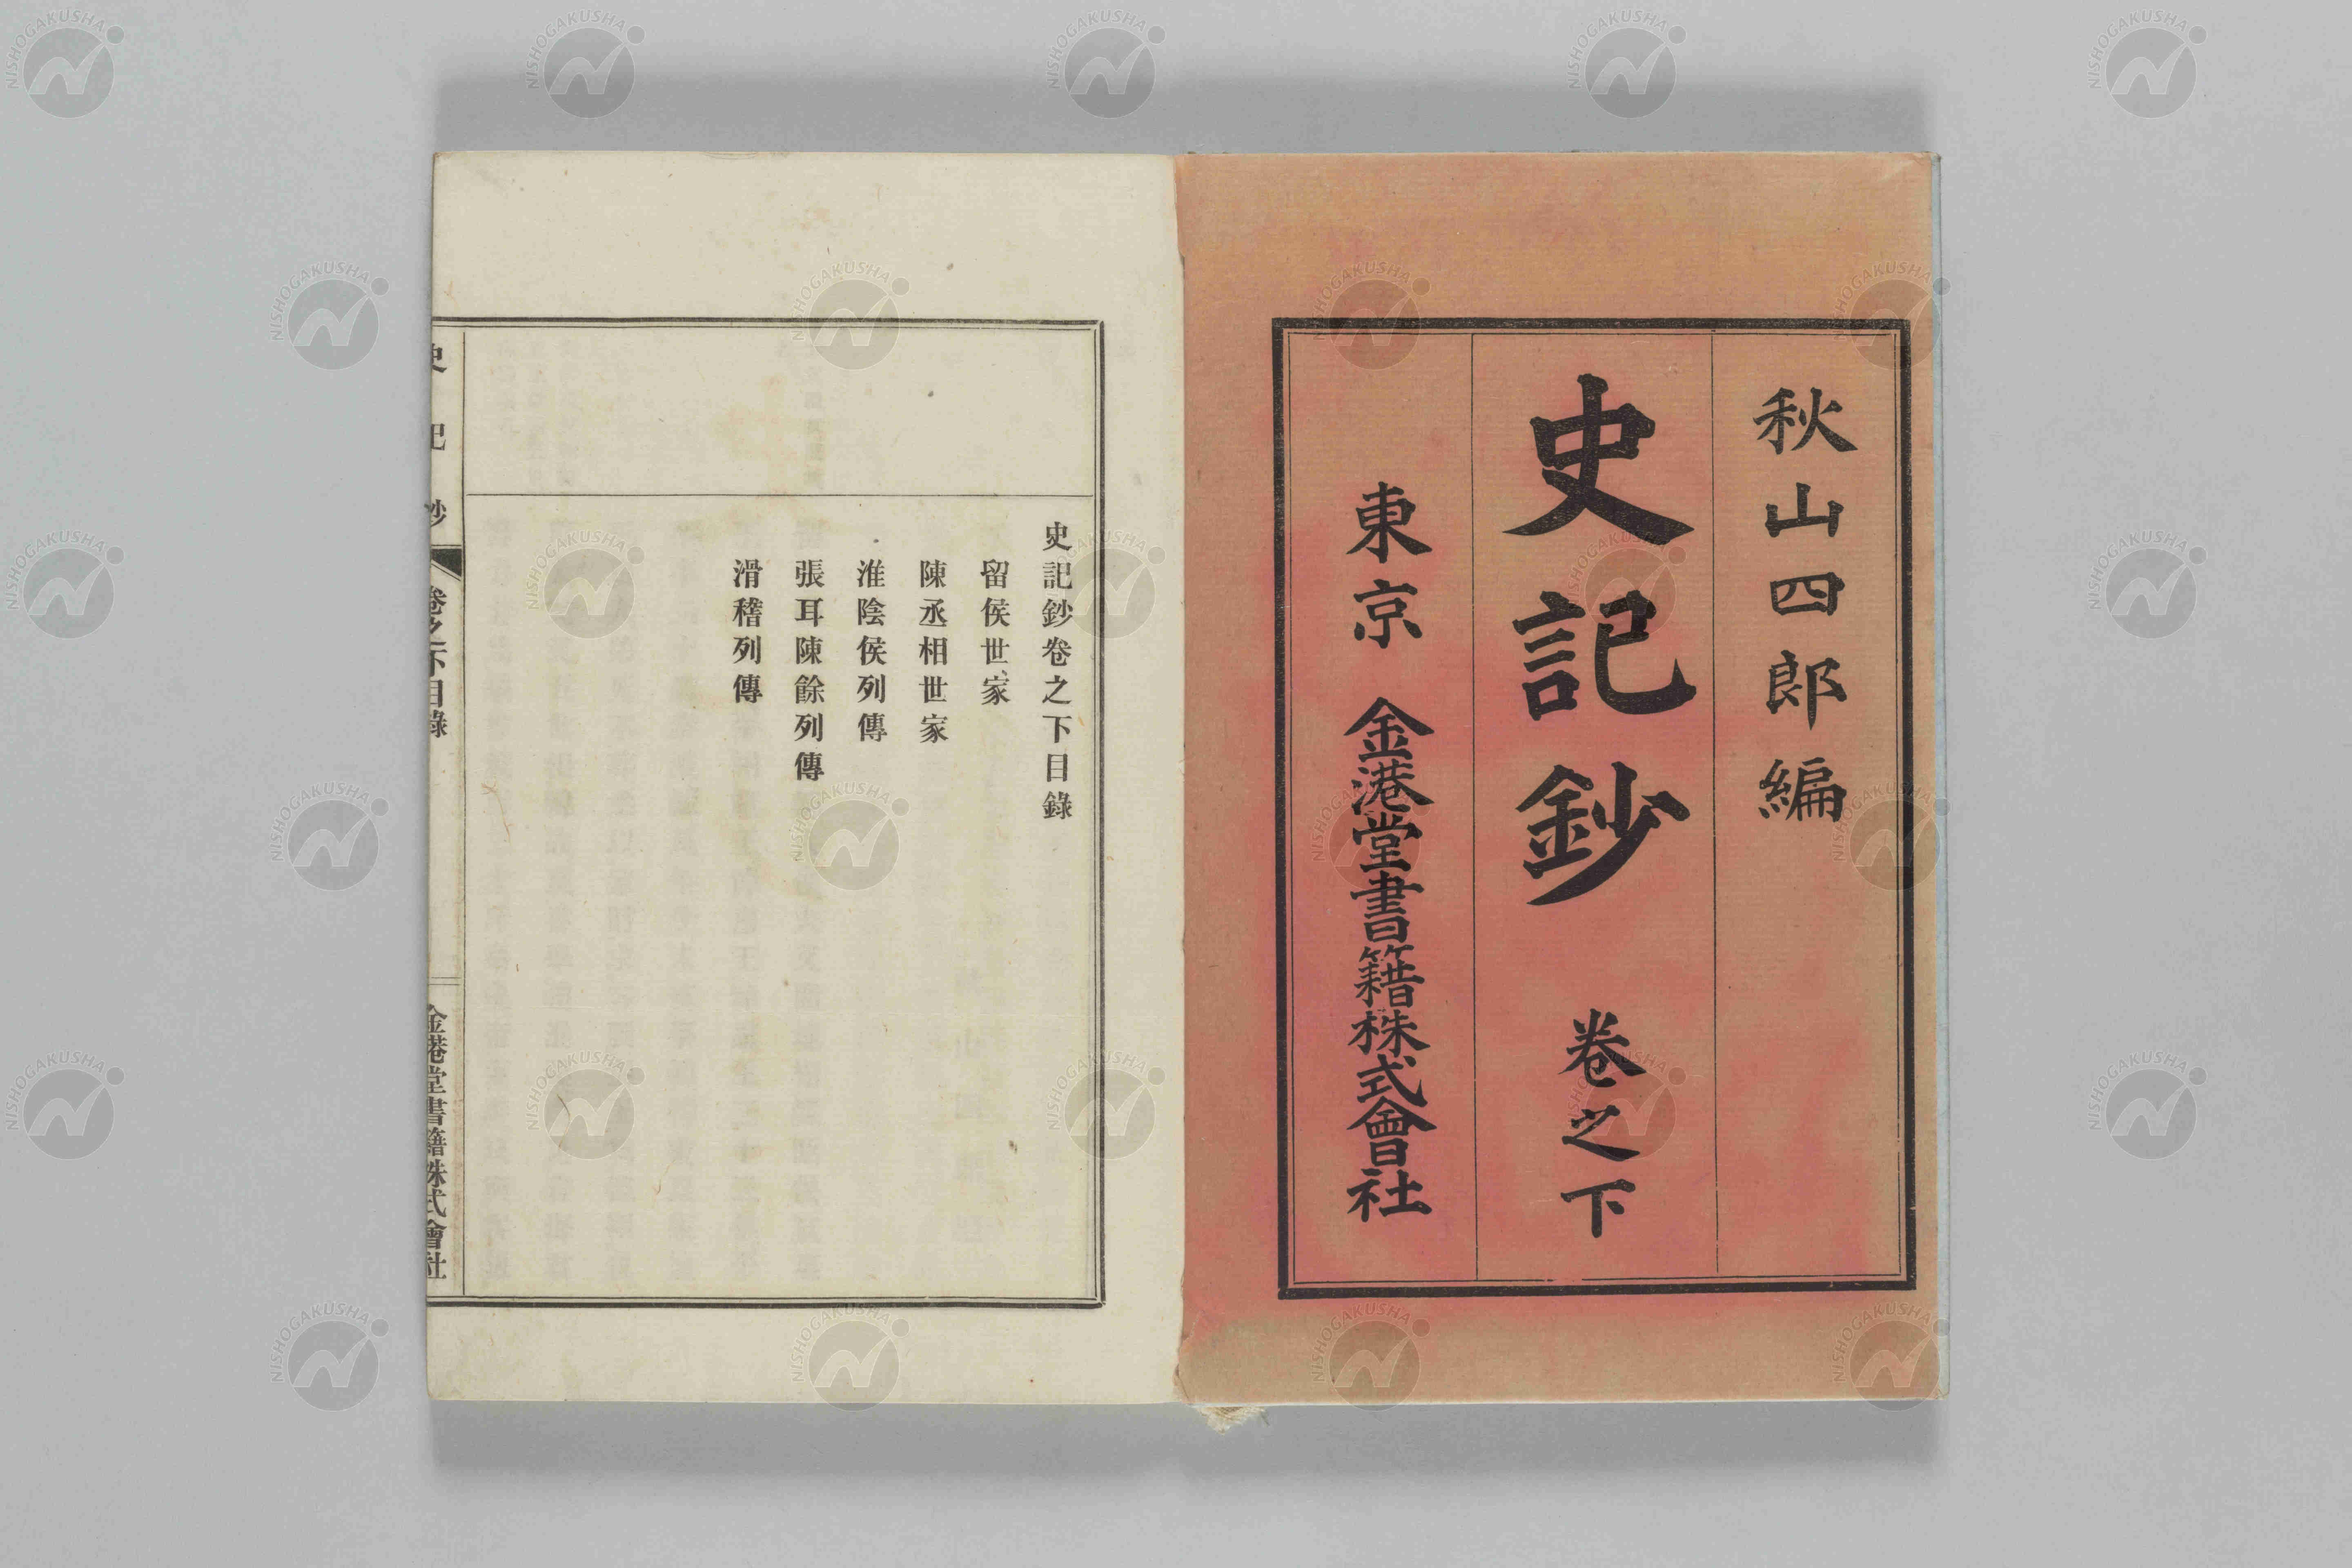 秋山四郎編
史記鈔 卷之下
東京 金港堂書籍株式會社
史記鈔卷之下目錄
留侯世家
陳丞相世家
淮陰侯列傳
張耳陳餘列傳
滑稽列傳
史記鈔 卷之下目錄 金港堂書籍株式會社
NISHOGAKUSHA